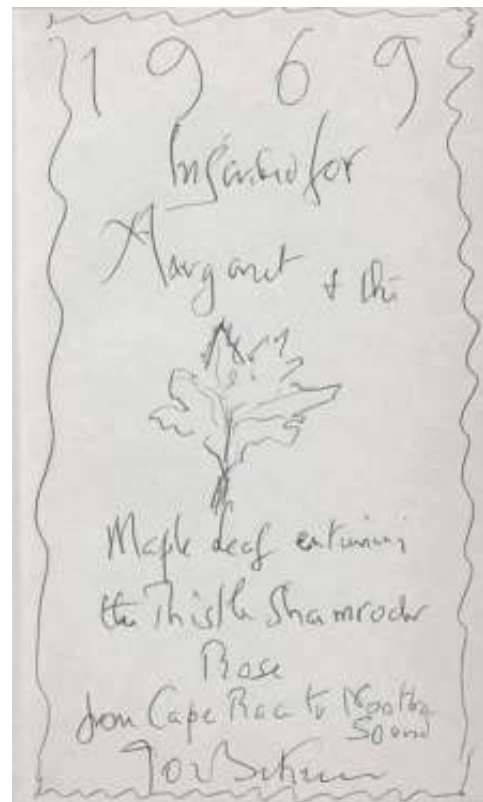 1969
Inscribed for
Margaret & the
Maple Leaf entwining
the Thistle Shamrock
Rose
from Cape Race to Nootka
Sound